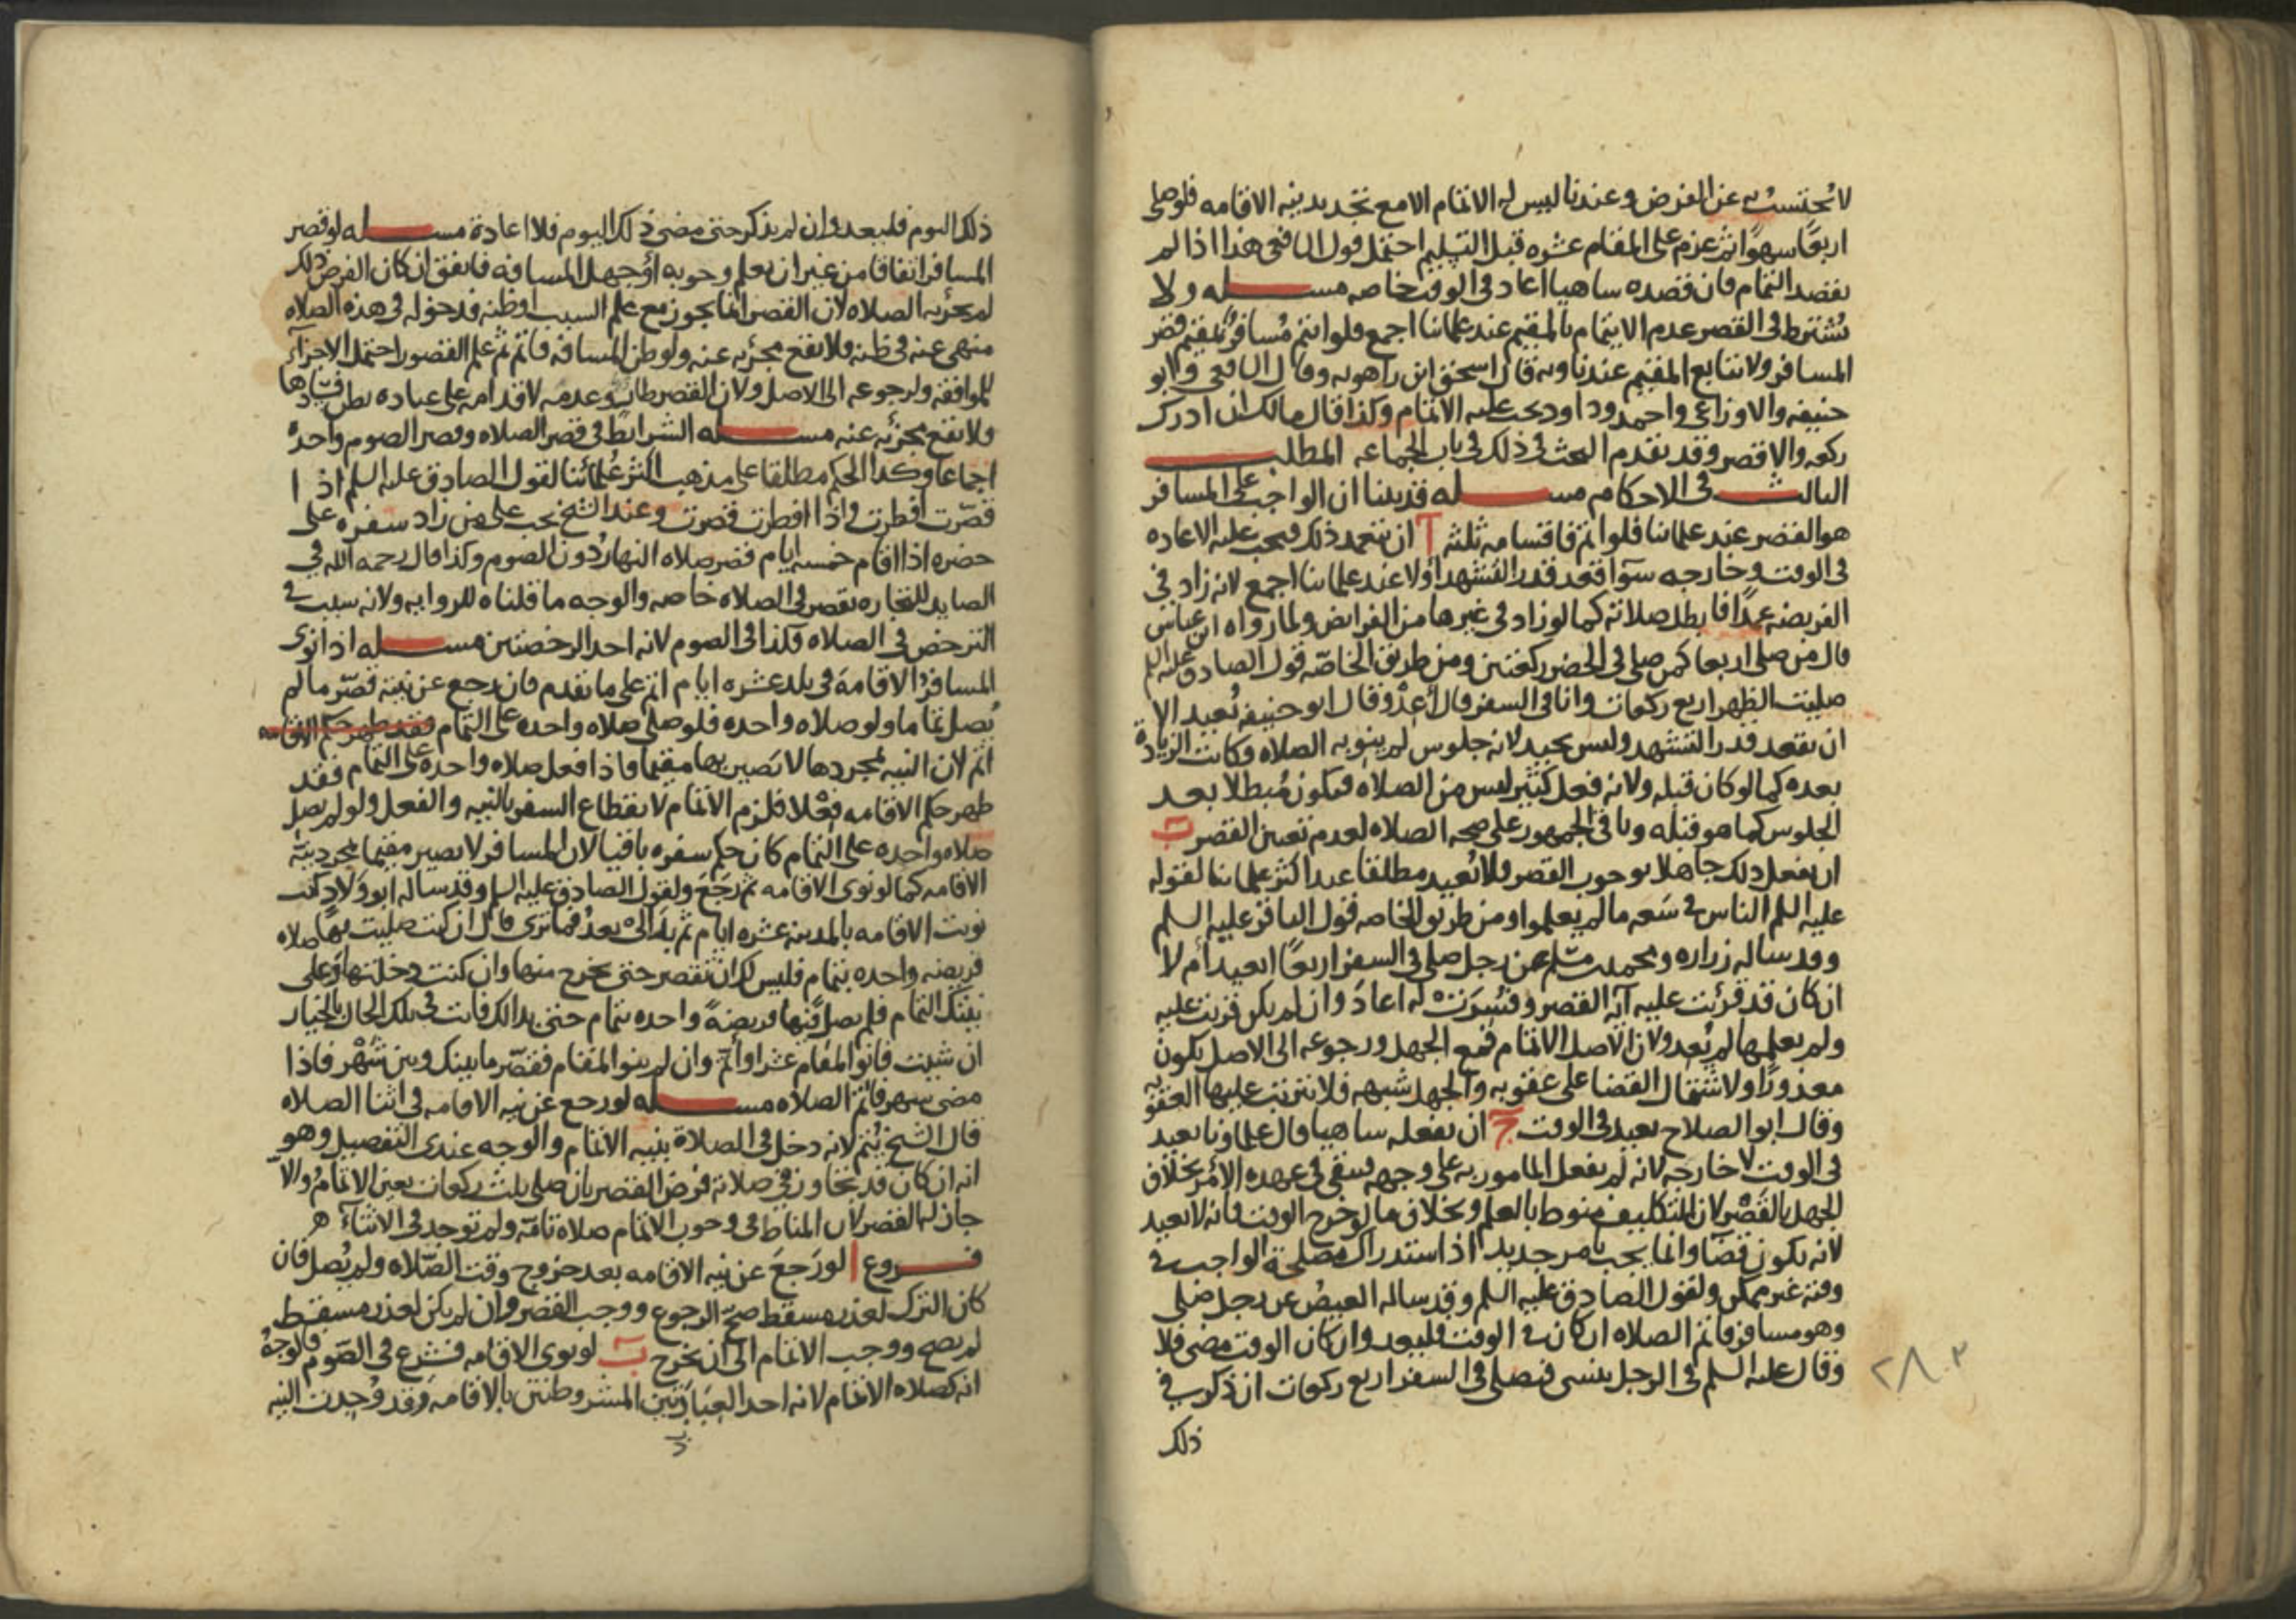 لا يحتسب به عن الفرض وعندنا ليس له الاتمام الا مع تجديد نيه الاقامه فلو صلى
اربعًا سهوًا ثم عزم على المقام عشره قبل التسليم احتمل قول الشافعي هذا اذا لم
يقصد التمام فان قصده ساهيا اعاد في الوقت خاصه مسله ولا
يُشترط في القصر عدم الايتمام بالمقيم عند علمائنا اجمع فلو ائتم مُسافر بمُقيم قصر
المسافر ولا يتابع المقيم عندنا وبه قال اسحق ابن راهويه وقال الشافعي وابو
حنيفه والاوزاعي واحمد وداود يجب عليه الاتمام وكذا قال مالك ان ادرك
ركعه والا قصر وقد تقدم البحث في ذلك في باب الجماعه المطلب
الثالث في الاحكام مسله قد بينا ان الواجب على المسافر
هو القصر عند علمائنا فلو اتم فاقسامه ثلثه آ ان يتعمد ذلك فيجب عليه الاعاده
في الوقت وخارجه سوآ قعد قدر التشهد او لا عند علمائنا اجمع لانه زاد في
الفريضه عمدًا فابطل صلاته كما لو زاد في غيرها من الفرايض ولما رواه ابن عباس
قال من صلى اربعا كمن صلى في الحضر ركعتين ومن طريق الخاصّه قول الصادق عليه السلم
صليت الظهر اربع ركعات وانا في السفر قال أعِدْ وقال ابو حنيفه يُعيد الا
ان يقعد قدر التشهد وليس بجيد لانه جلوس لم ينو به الصلاه وكانت الزيادة
بعده كما لو كان قبله ولانه فعل كثير ليس من الصلاه فيكون مُبطلا بعد
الجلوس كما هو قبله وباقي الجمهور على صحه الصلاه لعدم تعين القصر ب
ان يفعل ذلك جاهلا بوجوب القصر فلا يُعيد مطلقا عند اكثر علمائنا لقوله
عليه السلم الناس في سَعه ما لم يعلموا ومن طريق الخاصه قول الباقر عليه السلم
وقد ساله زراره ومحمد بن مسلم عن رجل صلى في السفر اربعًا ايعيد أم لا
ان كان قد قرئت عليه آية القصر وفُسِّرت له اعادَ وان لم يكن قريت عليه
ولم يعلمها لم يُعد ولان الاصل الاتمام فمع الجهل ورجوعه الى الاصل يكون
معذورًا ولاشتمال القضا على عقوبه والجهل شبهه فلا تترتب عليها العقوبه
وقال ابو الصلاح يعيد في الوقت ج ان يفعله ساهيا قال علماونا يعيد
في الوقت لا خارجه لانه لم يفعل المامور به على وجهه فيبقى في عهده الامر بخلاف
الجهل بالقَصْر لان التكليف منوط بالعلم وبخلاف ما لو خرج الوقت فانه لا يعيد
لانه يكون قضآ وانما يجب بامر جديد اذ استدراك مصلحة الواجب في
وقته غير ممكن ولقول الصادق عليه السلم وقد ساله العيص عن رجل صلى
وهو مسافر فاتم الصلاه ان كان في الوقت فليعد وان كان الوقت مضى فلا
وقال عليه السلم في الرجل ينسى فيصلي في السفر اربع ركعات ان ذكر في
ذلك
ذلك اليوم فليعد وان لم يذكر حتى مضى ذلك اليوم فلا اعادة مسله لو قصر
المسافر اتفاقا من غير ان يعلم وجوبه أوجهل المسافه فاتفق ان كان الفرض ذلك
لم يجزيه الصلاه لان القصر انما يجوز مع علم السبب او ظنه فدخوله في هذه الصلاه
منهى عنه في ظنه فلا تقع مجزيه عنه ولو ظن المسافه فاتم ثم علم القصور احتمل الاجزآء
للموافقه ولرجوعه الى الاصل ولان القصر طار وعدمه لاقدامه على عباده يظن فسادها
فلا تقع مجزئه عنه مسله الشرايط في قصر الصلاه وقصر الصوم واحدة
اجماعا وكذا الحكم مطلقا على مذهب اكثر عُلمائنا لقول الصادق عليه السلم اذا
قصّرت افطرت واذا افطرت قصرت وعند الشيخ يجب على من زاد سفره على
حضره اذا اقام خمسه ايام قصر صلاه النهار دُون الصوم وكذا قال رحمه الله في
الصايد للتجاره يقصر في الصلاه خاصه والوجه ما قلناه للروايه ولانه سبب في
الترخص في الصلاه فكذا في الصوم لانه احد الرخصتين مسله اذا نوى
المسافر الاقامة في بلد عشره ايام اتم على ما تقدم فان رجع عن نيته قصّر ما لم
يُصل تماما ولو صلاه واحده فلو صلى صلاه واحده على التمام فقد ظهر حكم الاقامه
اتم لان النيه بمجردها لا يَصير بها مقيما فاذا فعل صلاه واحدة على التمام فقد
ظهر حكم الاقامه فِعْلا فلزم الاتمام لانقطاع السفر بالنيه والفعل ولو لم يصل
صلاه واحده على التمام كان حكم سفره باقيا لان المسافر لا يصير مقيما بمجرد نيّة
الاقامه كما لو نوى الاقامه ثم رَجَعَ ولقول الصادق عليه السلم وقد ساله ابو ولاد كنت
نويت الاقامه بالمدينه عشره ايام ثم بدا لي بعدُ فما ترى قال ان كنت صليت بها صلاه
فريضه واحده بتمام فليس لك ان تقصر حتى تخرج منها وان كنت دخلتها وعلى
نيتك التمام فلم تصل فيها فريضةً واحده بتمام حتى بدا لك فانت في تلك الحال بالخيار
ان شيت فانو المقام عشرا وأتم وان لم تنو المقام فقصّر ما بينك وبين شهْر فاذا
مضى شهر فاتم الصلاه مسله لو رجع عن نيه الاقامه في اثنا الصلاه
قال الشيخ يُتم لانه دخل في الصلاة بنيه الاتمام والوجه عندي التفصيل وهو
انه ان كان قد تجاوز في صلاته فرض القصر بان صلى ثلث ركعات تعين الاتمامُ والا
جاز له القصر لان المناط في وجوب الاتمام صلاه تامّه ولم توجد في الاثناء ه
فروع ا لو رَجعَ عن نيه الاقامه بعد خروج وقت الصّلاه ولم يُصل فان
كان الترك لعذر مسقط صح الرجوع ووجب القصر وان لم يكن لعذر مسقط
لم يصح ووجب الاتمام الى ان يخرج ب لو نوى الاقامه فشرع في الصّوم فالوجهُ
انه كصلاه الاتمام لانه احد العِبَادتين المشروطتين بالاقامه وقد وُجدت النيه